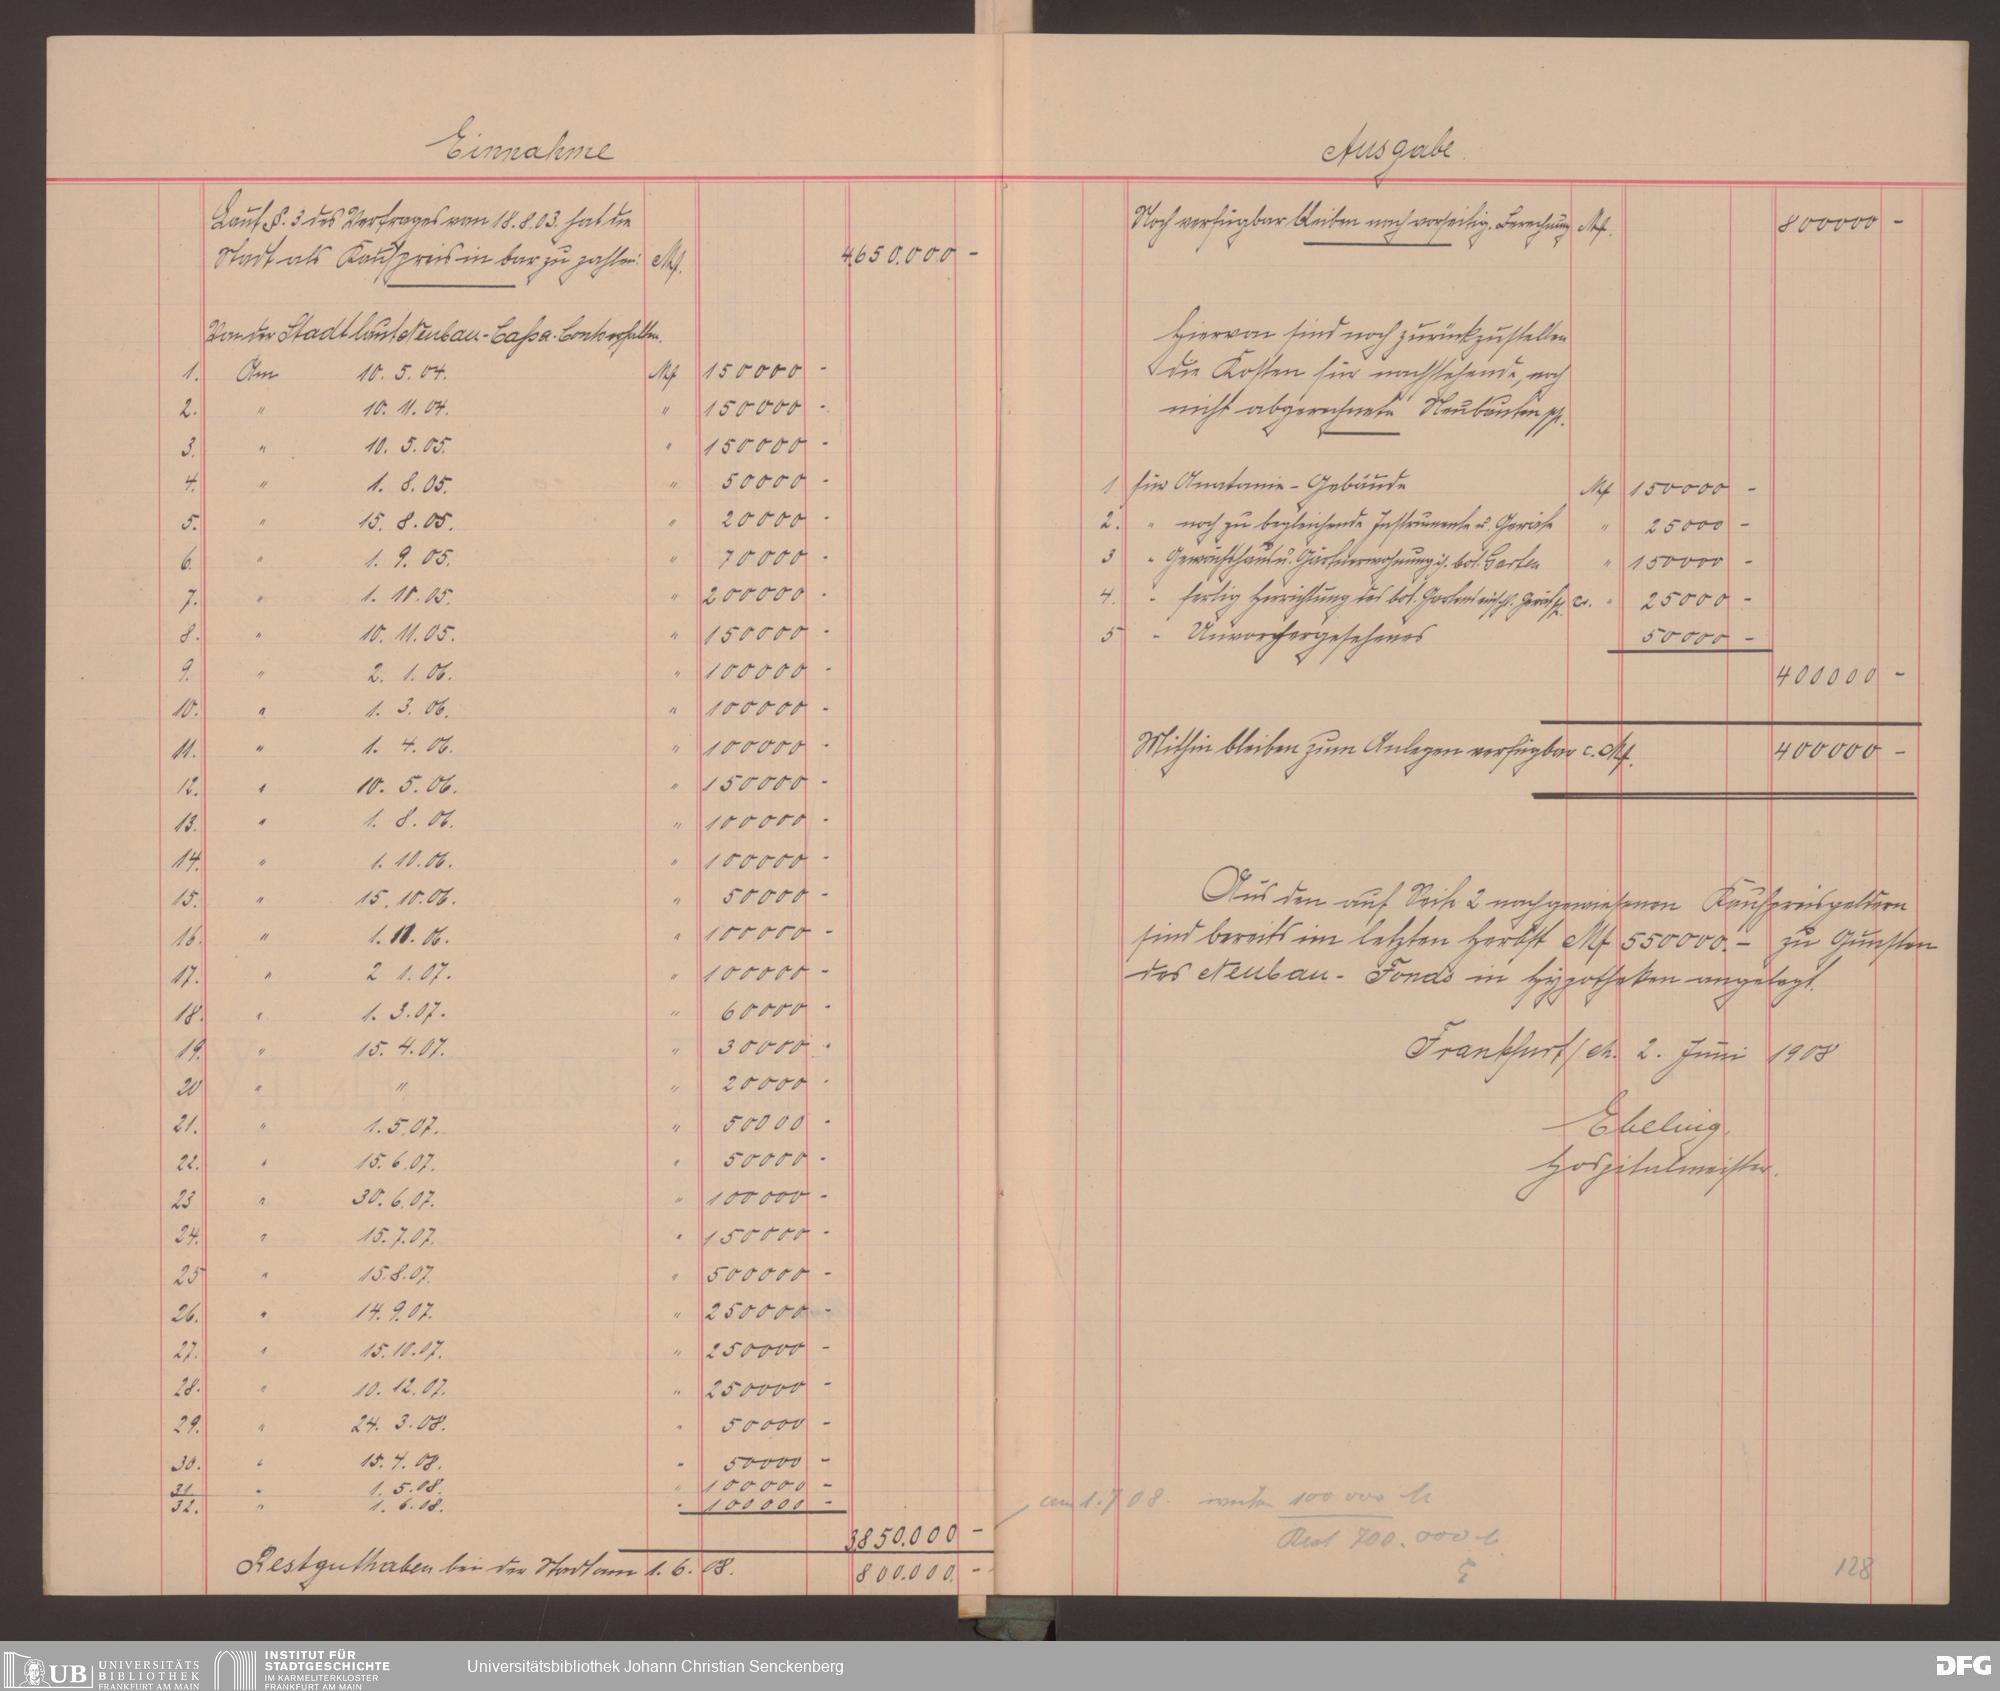 Einnahme
Laut §. 3 des Vertrages von 18.8.03. hat die
Stadt als Kaufpreis in bar zu zahlen: Mk. 4.650.000 -
Von der Stadt laut Neubau-Cassa-Conto erhalten.
1. Am 10. 5. 04. Mk 150000 -
2. " 10. 11. 04. " 150000 -
3. " 10. 5. 05. " 150000 -
4. " 1. 8. 05. " 50000 -
5. " 15. 8. 05. " 20000 -
6. " 1. 9. 05. " 70000 -
7. " 1. 10. 05. " 200000 -
8. " 10. 11. 05. " 150000 -
9. " 2. 1. 06. " 100000 -
10. " 1. 3. 06. " 100000 -
11. " 1. 4. 06. " 100000 -
12. " 10. 5. 06. " 150000 -
13. " 1. 8. 06. " 100000 -
14. " 1. 10. 06. " 100000 -
15. " 15. 10. 06. " 50000 -
16. " 1. 11. 06. " 100000 -
17. " 2 1. 07. " 100000 -
18. " 1. 3. 07. " 60000 -
19. " 15. 4. 07. " 30000 -
20 " " " 20000 -
21. " 1. 5. 07. " 50000 -
22. " 15. 6. 07. " 50000 -
23 " 30. 6. 07. " 100000 -
24. " 15. 7. 07. " 150000 -
25 " 15. 8. 07. " 500000 -
26. " 14. 9. 07. " 250000 -
27. " 15. 10. 07. " 250000 -
28. " 10. 12. 07. " 250000 -
29. " 24. 3. 08. " 50000 -
30. " 15. 4. 08. " 50000 -
31. " 1. 5. 08. " 100000 -
32. " 1. 6. 08. " 100000 -
3.850.000 -
Restguthaben bei der Stadt am 1. 6. 08. 800.000. -
Ausgabe.
Noch verfügbar bleiben nach vorseitig. Berechnung Mk. 800000 -
Hiervon sind noch zurückzustellen
die Kosten für nachstehende, noch
nicht abgerechnete Neubauten pp.
1 für Anatomie-Gebäude Mk 150000 -
2. " noch zu begleichende Instrumente u. Geräte " 25000 -
3 " Gewächshaus u. Gärtnerwohnung i. bot. Garten " 150000 -
4. " fertig Herrichtung des bot. Gartens einschl. Geräte pp. ca. " 25000 -
5 " Unvorhergesehenes 50000 -
400000 -
Mithin bleiben zum Anlegen verfügbar c. Mk. 400000 -
Aus den auf Seite 2 nachgewiesenen Kaufpreisgeldern
sind bereits im letzten Herbst Mk 550000.- zu Gunsten
des Neubau-Fonds in Hypotheken angelegt.
Frankfurt/M. 2. Juni 1908
Ebeling.
Hospitalmeister.
am 1. 7 08. weitere 100 000 M
Rest 700.000 M.
128
UB UNIVERSITÄTS
BIBLIOTHEK
FRANKFURT AM MAIN
INSTITUT FÜR
STADTGESCHICHTE
IM KARMELITERKLOSTER
FRANKFURT AM MAIN
Universitätsbibliothek Johann Christian Senckenberg
DFG